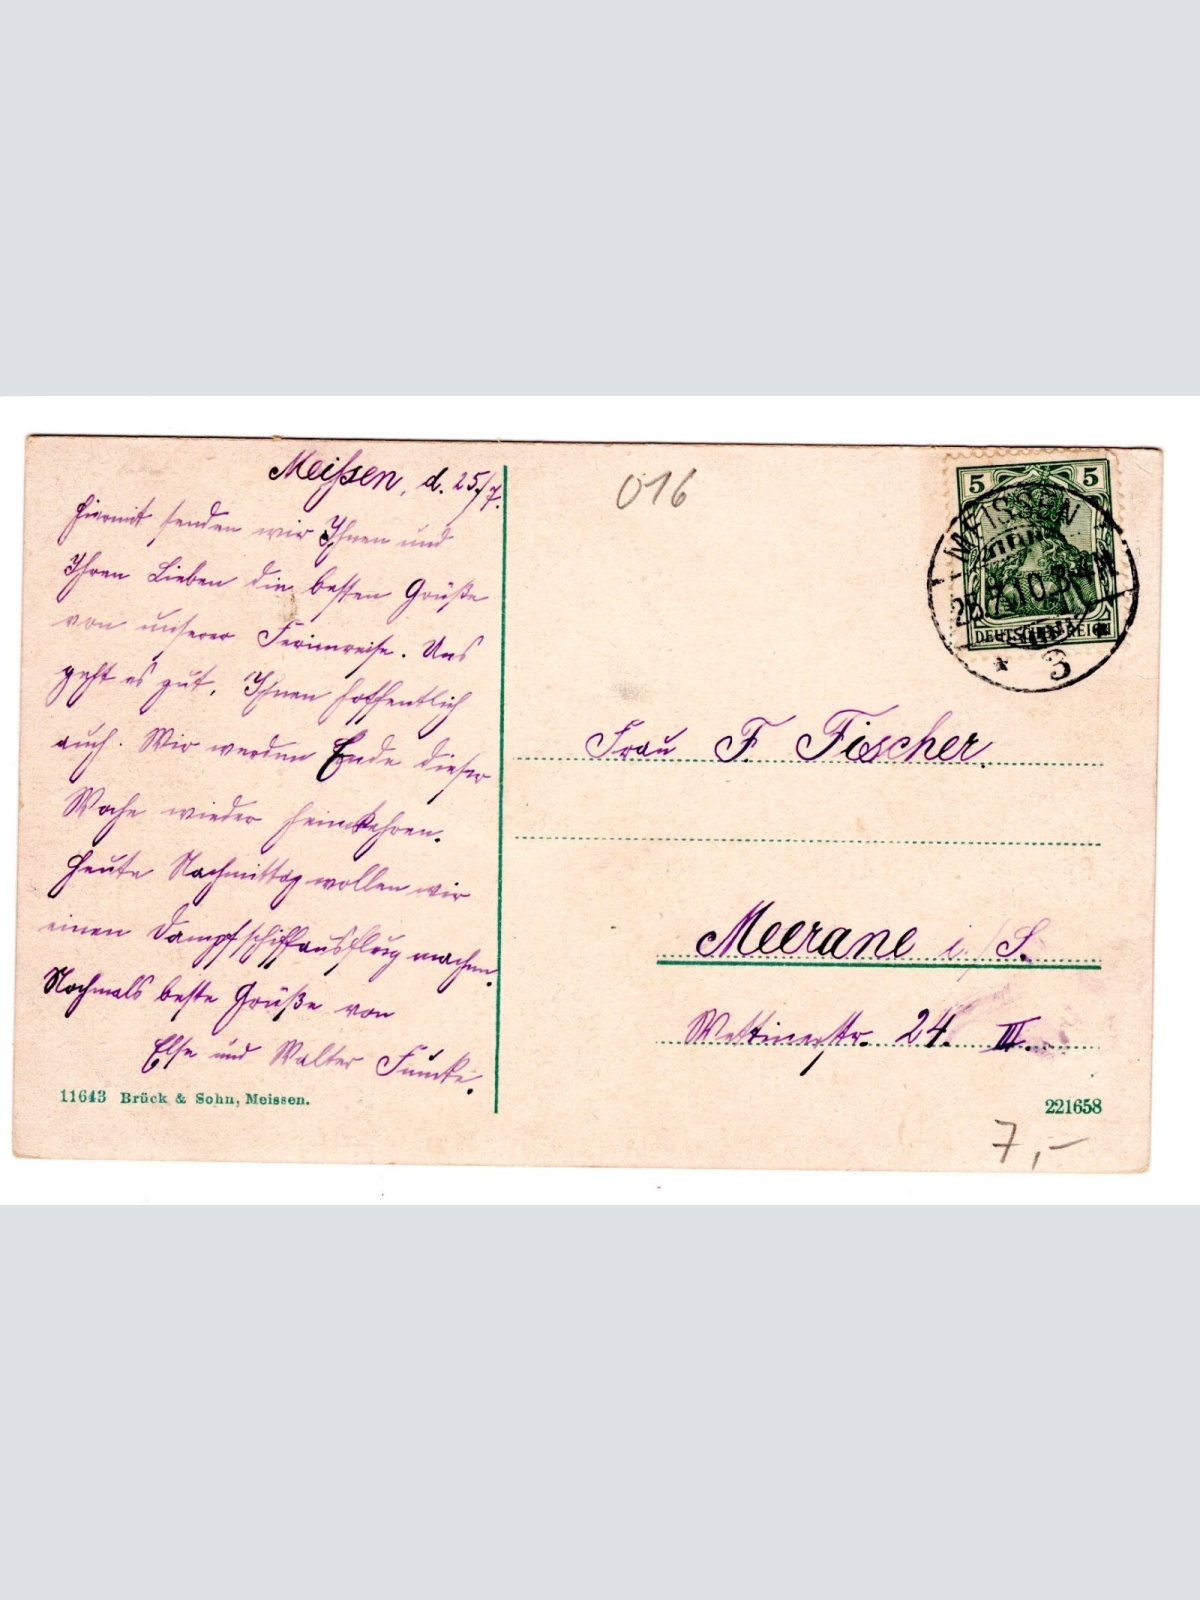 Meißen, d. 25./7.
Hiermit senden wir Ihnen und
Ihren Lieben die besten Grüße
von unserer Ferienreise. Uns
geht es gut, Ihnen hoffentlich
auch. Wir werden Ende dieser
Woche wieder heimkehren.
Heute Nachmittag wollen wir
einen Dampfschiffausflug machen.
Nochmals beste Grüße von
Else und Walter Funke.
11643 Brück & Sohn, Meissen.
016
5 5
DEUTSCHES REICH
MEISSEN
25.7.10. 3-4N
* 3
Frau F. Fischer.
Meerane i/S.
Wettinerstr. 24. III.
221658
7,-